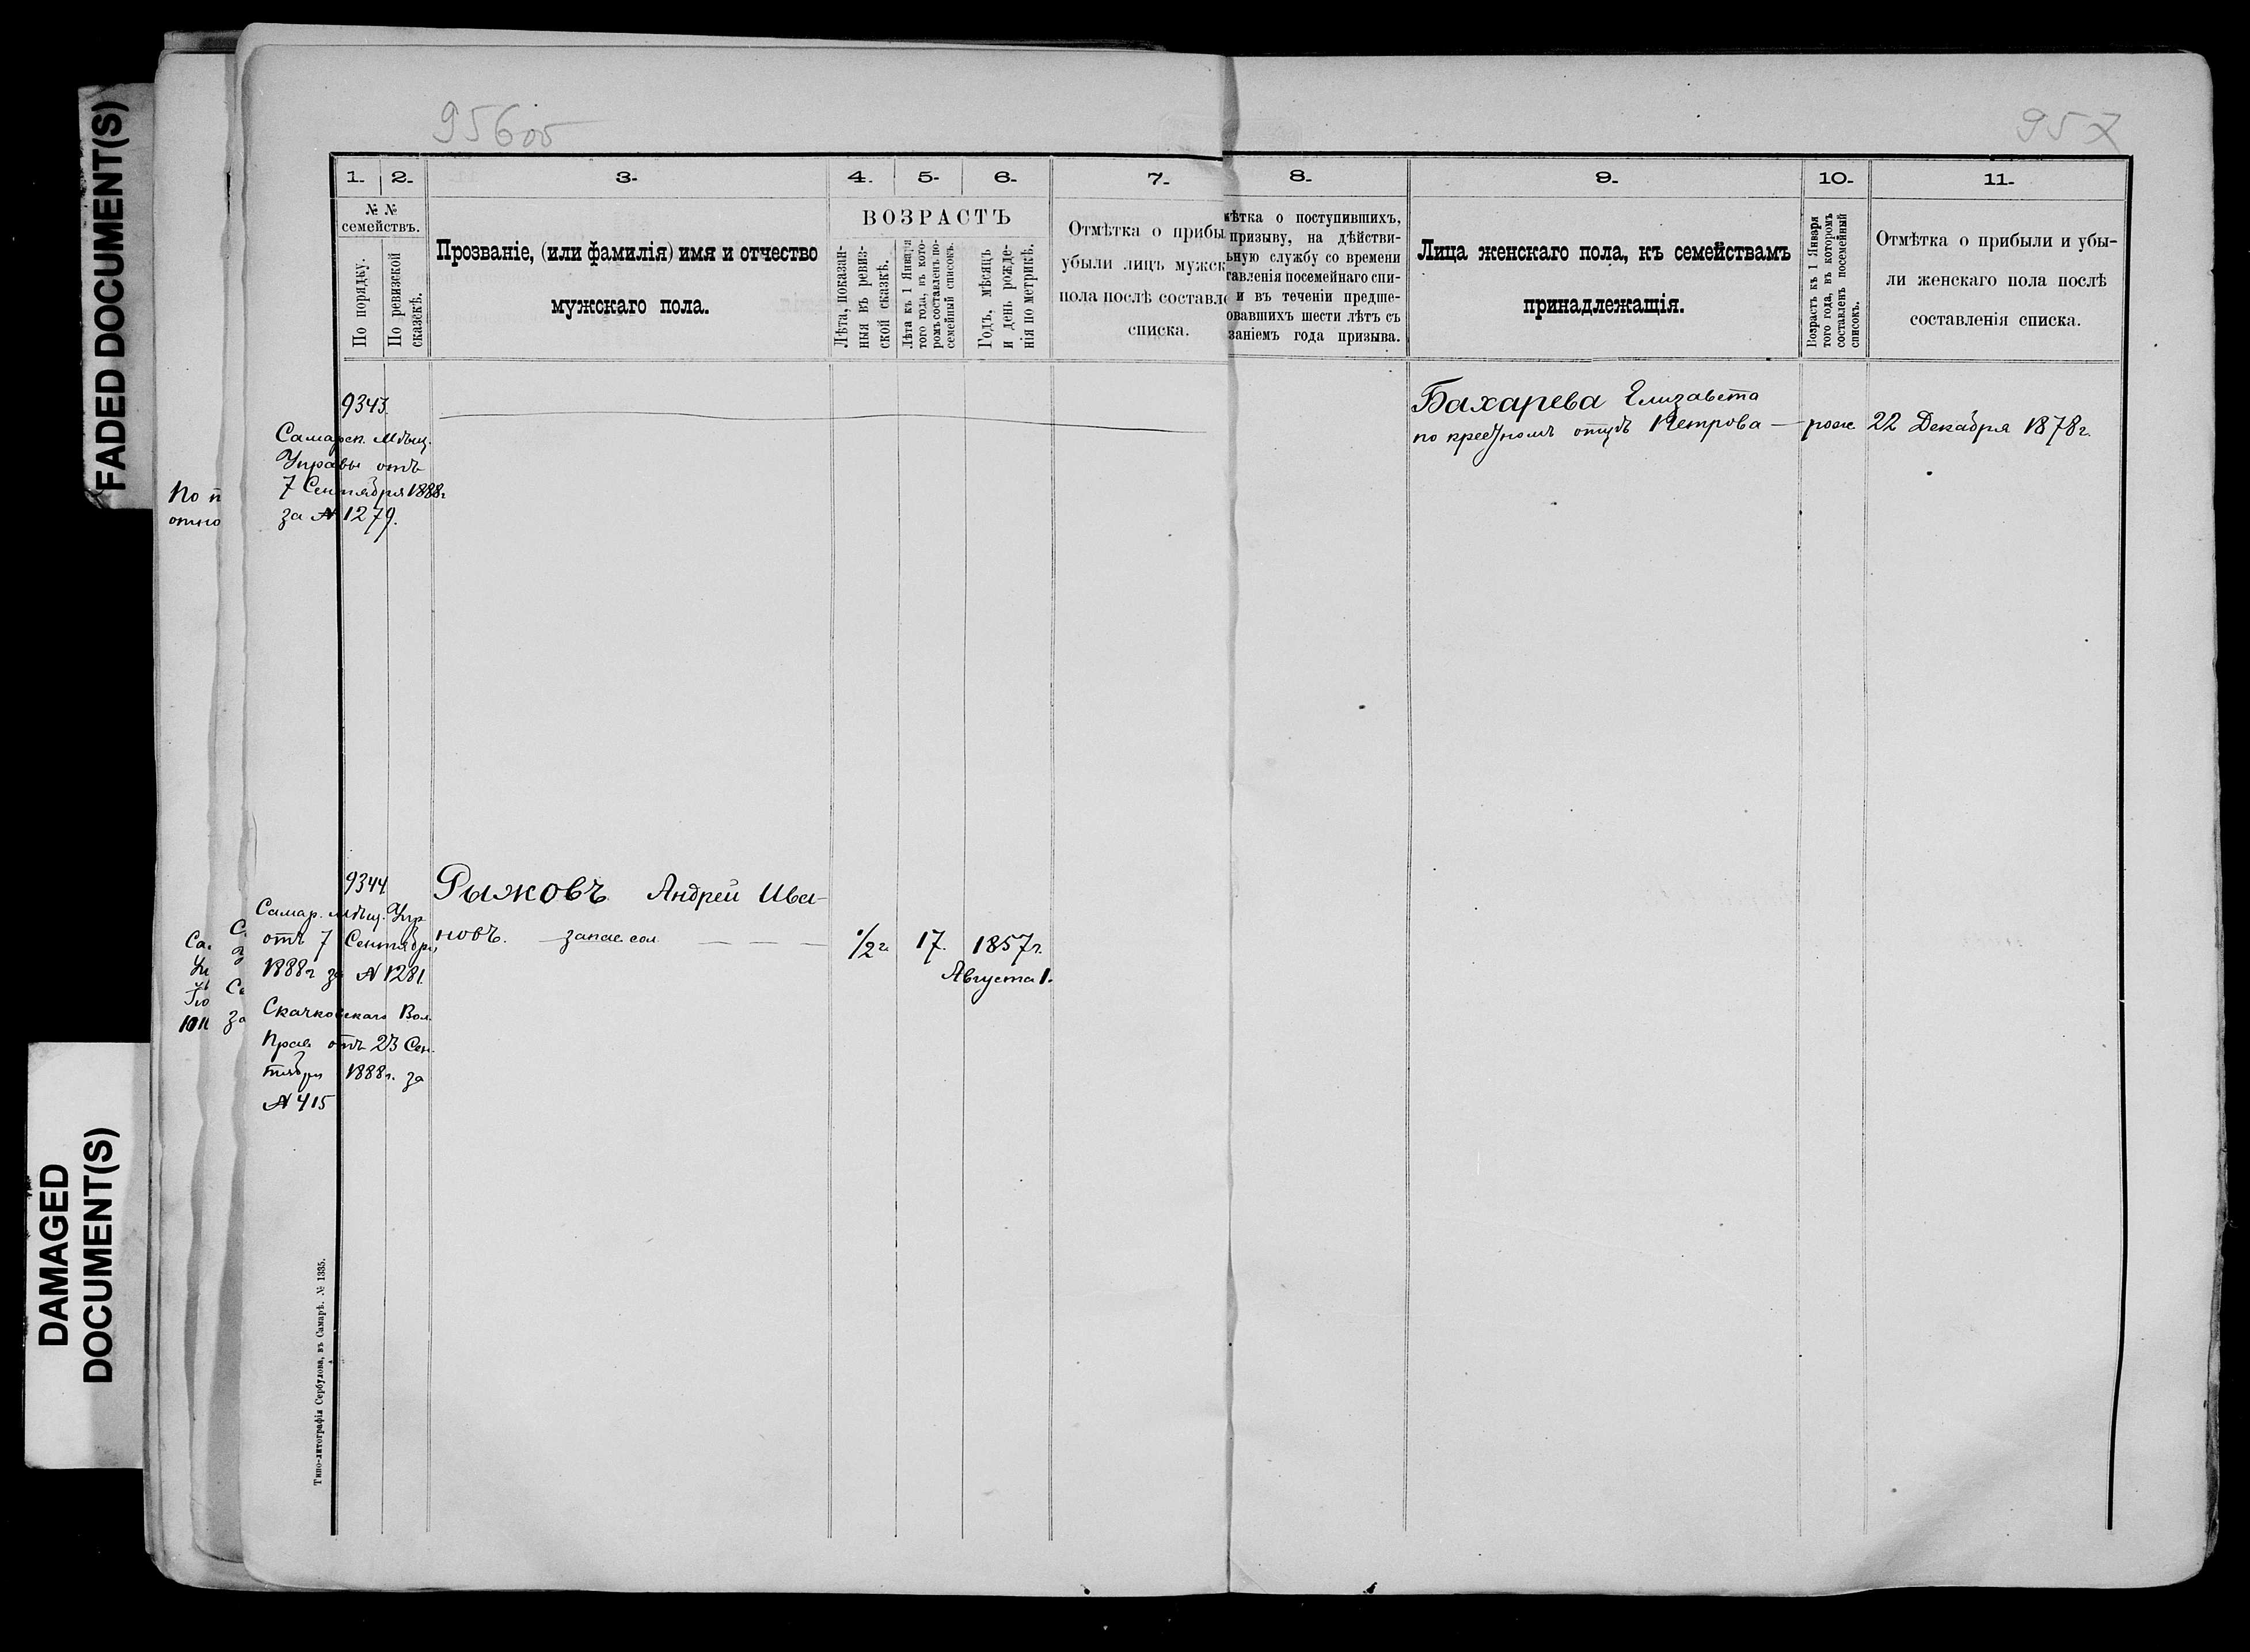 FADED DOCUMENT(S)
DAMAGED
DOCUMENT(S)
956об
957
1. 2. 3. 4. 5. 6. 7. 8. 9. 10. 11.
№ №
семействъ.
По порядку.
По ревизской
сказкѣ.
Прозваніе, (или фамилія) имя и отчество
мужскаго пола.
ВОЗРАСТЪ
Лѣта, показан-
ныя въ ревиз-
ской сказкѣ.
Лѣта къ 1 Января
того года, въ кото-
ромъ составленъ по-
семейный списокъ.
Годъ, мѣсяцъ
и день рожде-
нія по метрикѣ.
Отмѣтка о прибы
убыли лицъ мужск
пола послѣ составле
списка.
мѣтка о поступившихъ,
призыву, на дѣйстви-
ьную службу со времени
тавленія посемейнаго спи-
и въ теченіи предше-
овавшихъ шести лѣтъ съ
заніемъ года призыва.
Лица женскаго пола, къ семействамъ
принадлежащія.
Возрастъ къ 1 Января
того года, въ которомъ
составленъ посемейный
списокъ.
Отмѣтка о прибыли и убы-
ли женскаго пола послѣ
составленія списка.
9343.
Самарск. Мѣщ.
Управы отъ
7 Сентября 1888г
за № 1279.
Бахарева Елизавета
по крестномъ отцѣ Петрова — рож 22 Декабря 1878г.
По п
отно
9344
Самар. Мѣщ. Упр
отъ 7 Сентября
1888г за № 1281.
Скачковскаго Вол.
Прав отъ 23 Сен-
тября 1888г. за
№ 415
Рыжовъ Андрей Ива-
новъ. запас. сол. 1/2 г. 17. 1857г.
Августа 1.
Типо-литографія Сербулова, въ Самарѣ. № 1335.